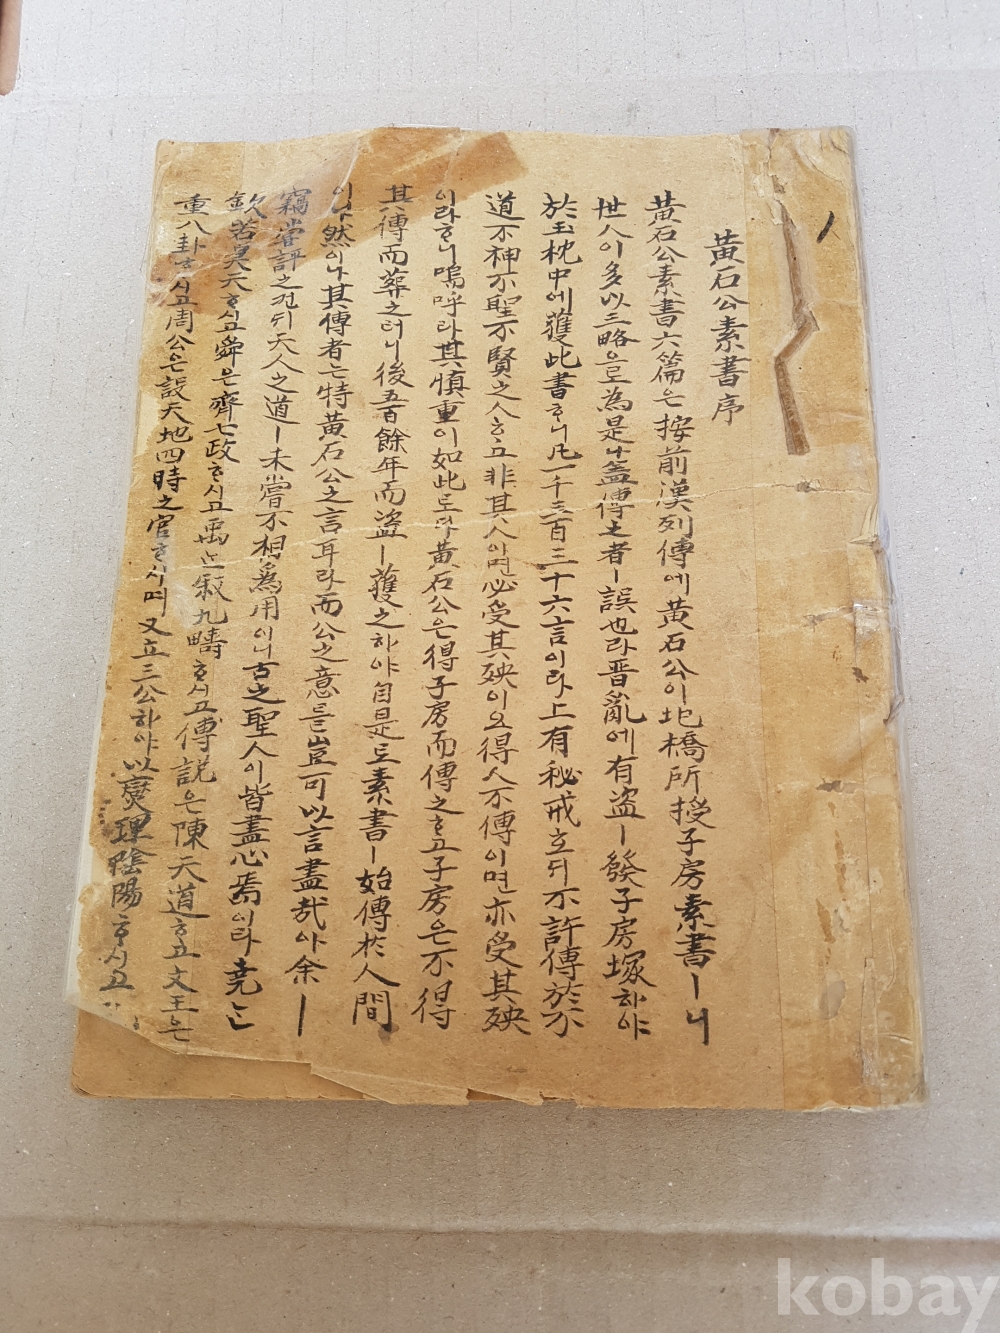 黃石公素書序
黃石公素書六篇은按前漢列傳에黃石公이圯橋所授子房素書ㅣ니
世人이多以三略으로為是나盖傳之者ㅣ誤也라晋亂에有盜ㅣ發子房塚하야
於玉枕中에獲此書ᄒᆞ니凡一千三百三十六言이라上有秘戒호ᄃᆡ不許傳於不
道不神不聖不賢之人ᄒᆞ고非其人이면必受其殃이오得人不傳이면亦受其殃
이라ᄒᆞ니嗚呼라其慎重이如此로다黃石公은得子房而傳之ᄒᆞ고子房은不得
其傳而葬之러니後五百餘年而盜ㅣ獲之하야自是로素書ㅣ始傳於人間
이나然이나其傳者는特黃石公之言耳라而公之意를豈可以言盡哉아余ㅣ
竊嘗評之컨ᄃᆡ天人之道ㅣ未嘗不相為用이니古之聖人이皆盡心焉이라堯는
欽若昊天ᄒᆞ시고舜은齊七政ᄒᆞ시고禹는叙九疇ᄒᆞ시고傅說은陳天道ᄒᆞ고文王은
重八卦ᄒᆞ시고周公은設天地四時之官ᄒᆞ시며又立三公하야以燮理陰陽ᄒᆞ시고
kobay